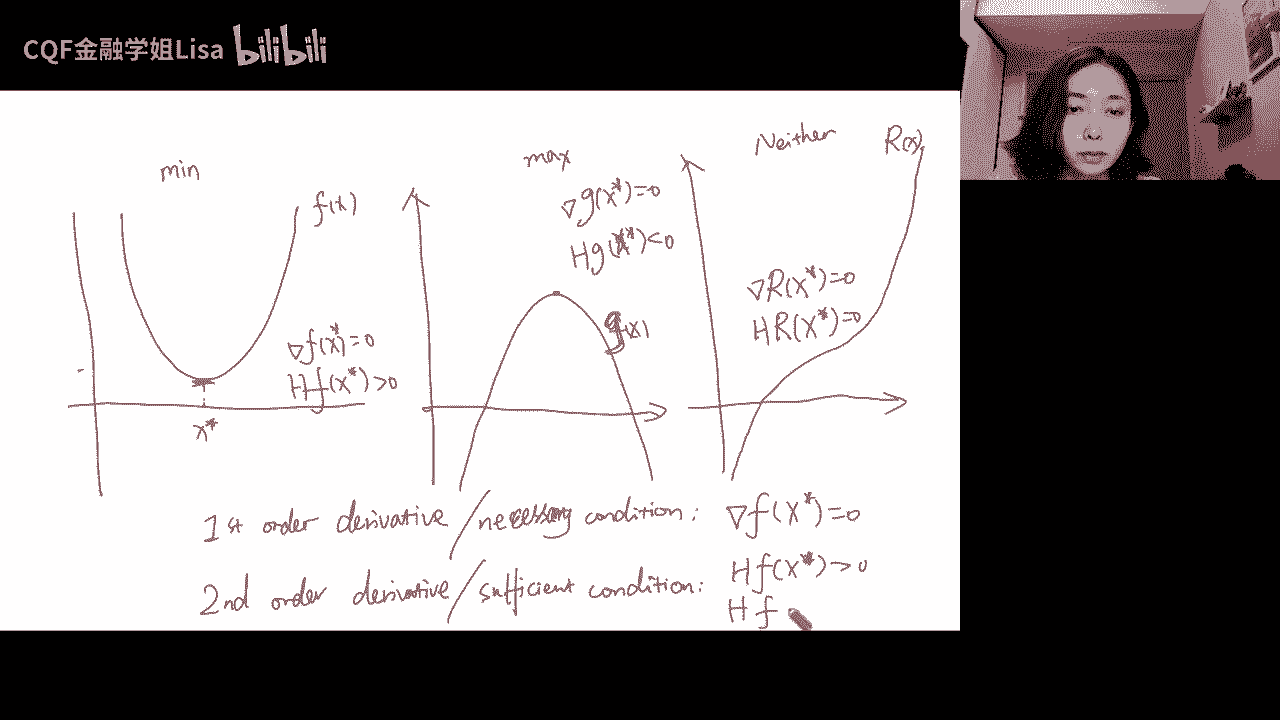 CQF金融学姐Lisa bilibili
min
f(x)
∇f(x*)=0
Hf(x*)>0
x*
max
∇g(x*)=0
Hg(x*)<0
g(x)
Neither
R(x)
∇R(x*)=0
HR(x*)=0
1st order derivative/necessary condition: ∇f(x*)=0
2nd order derivative/sufficient condition: Hf(x*)>0
Hf